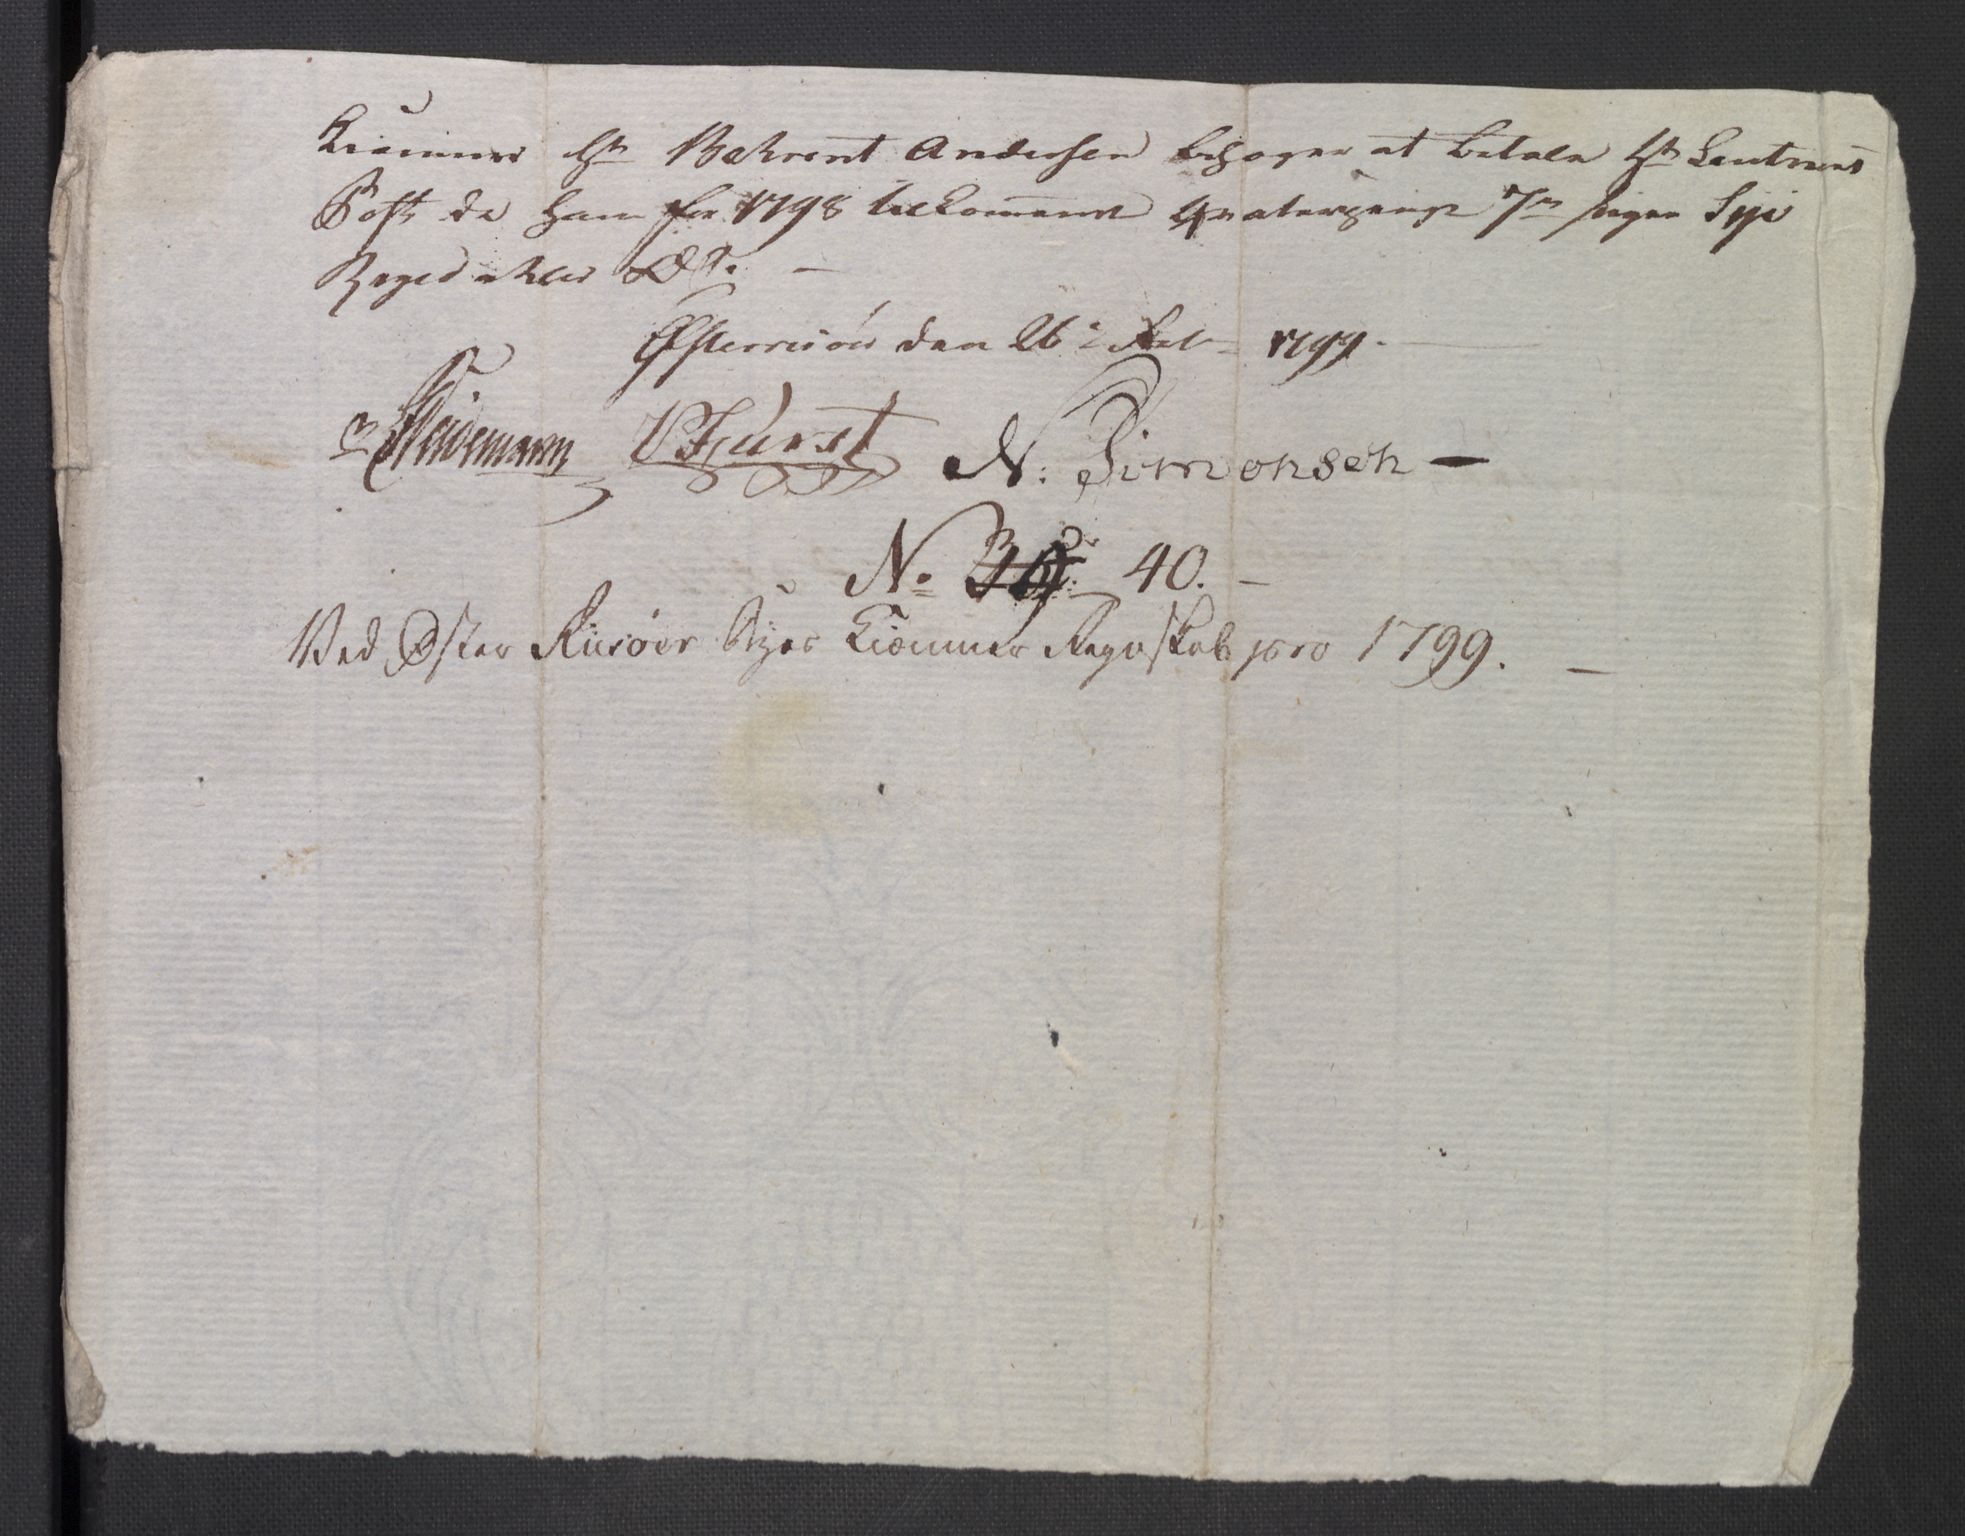 Kiæmner Hr Behrent Andersen behager at betale Hr Leutnant
Post de ham for 1798 tilkommende siger Syv
Rigsdaler
Østerriisöer den 26 1799.
Heidemann Furst N: Simonsen
No 40.
Ved Øster Riisöer Byes Kiæmner Regnskab pro 1799.